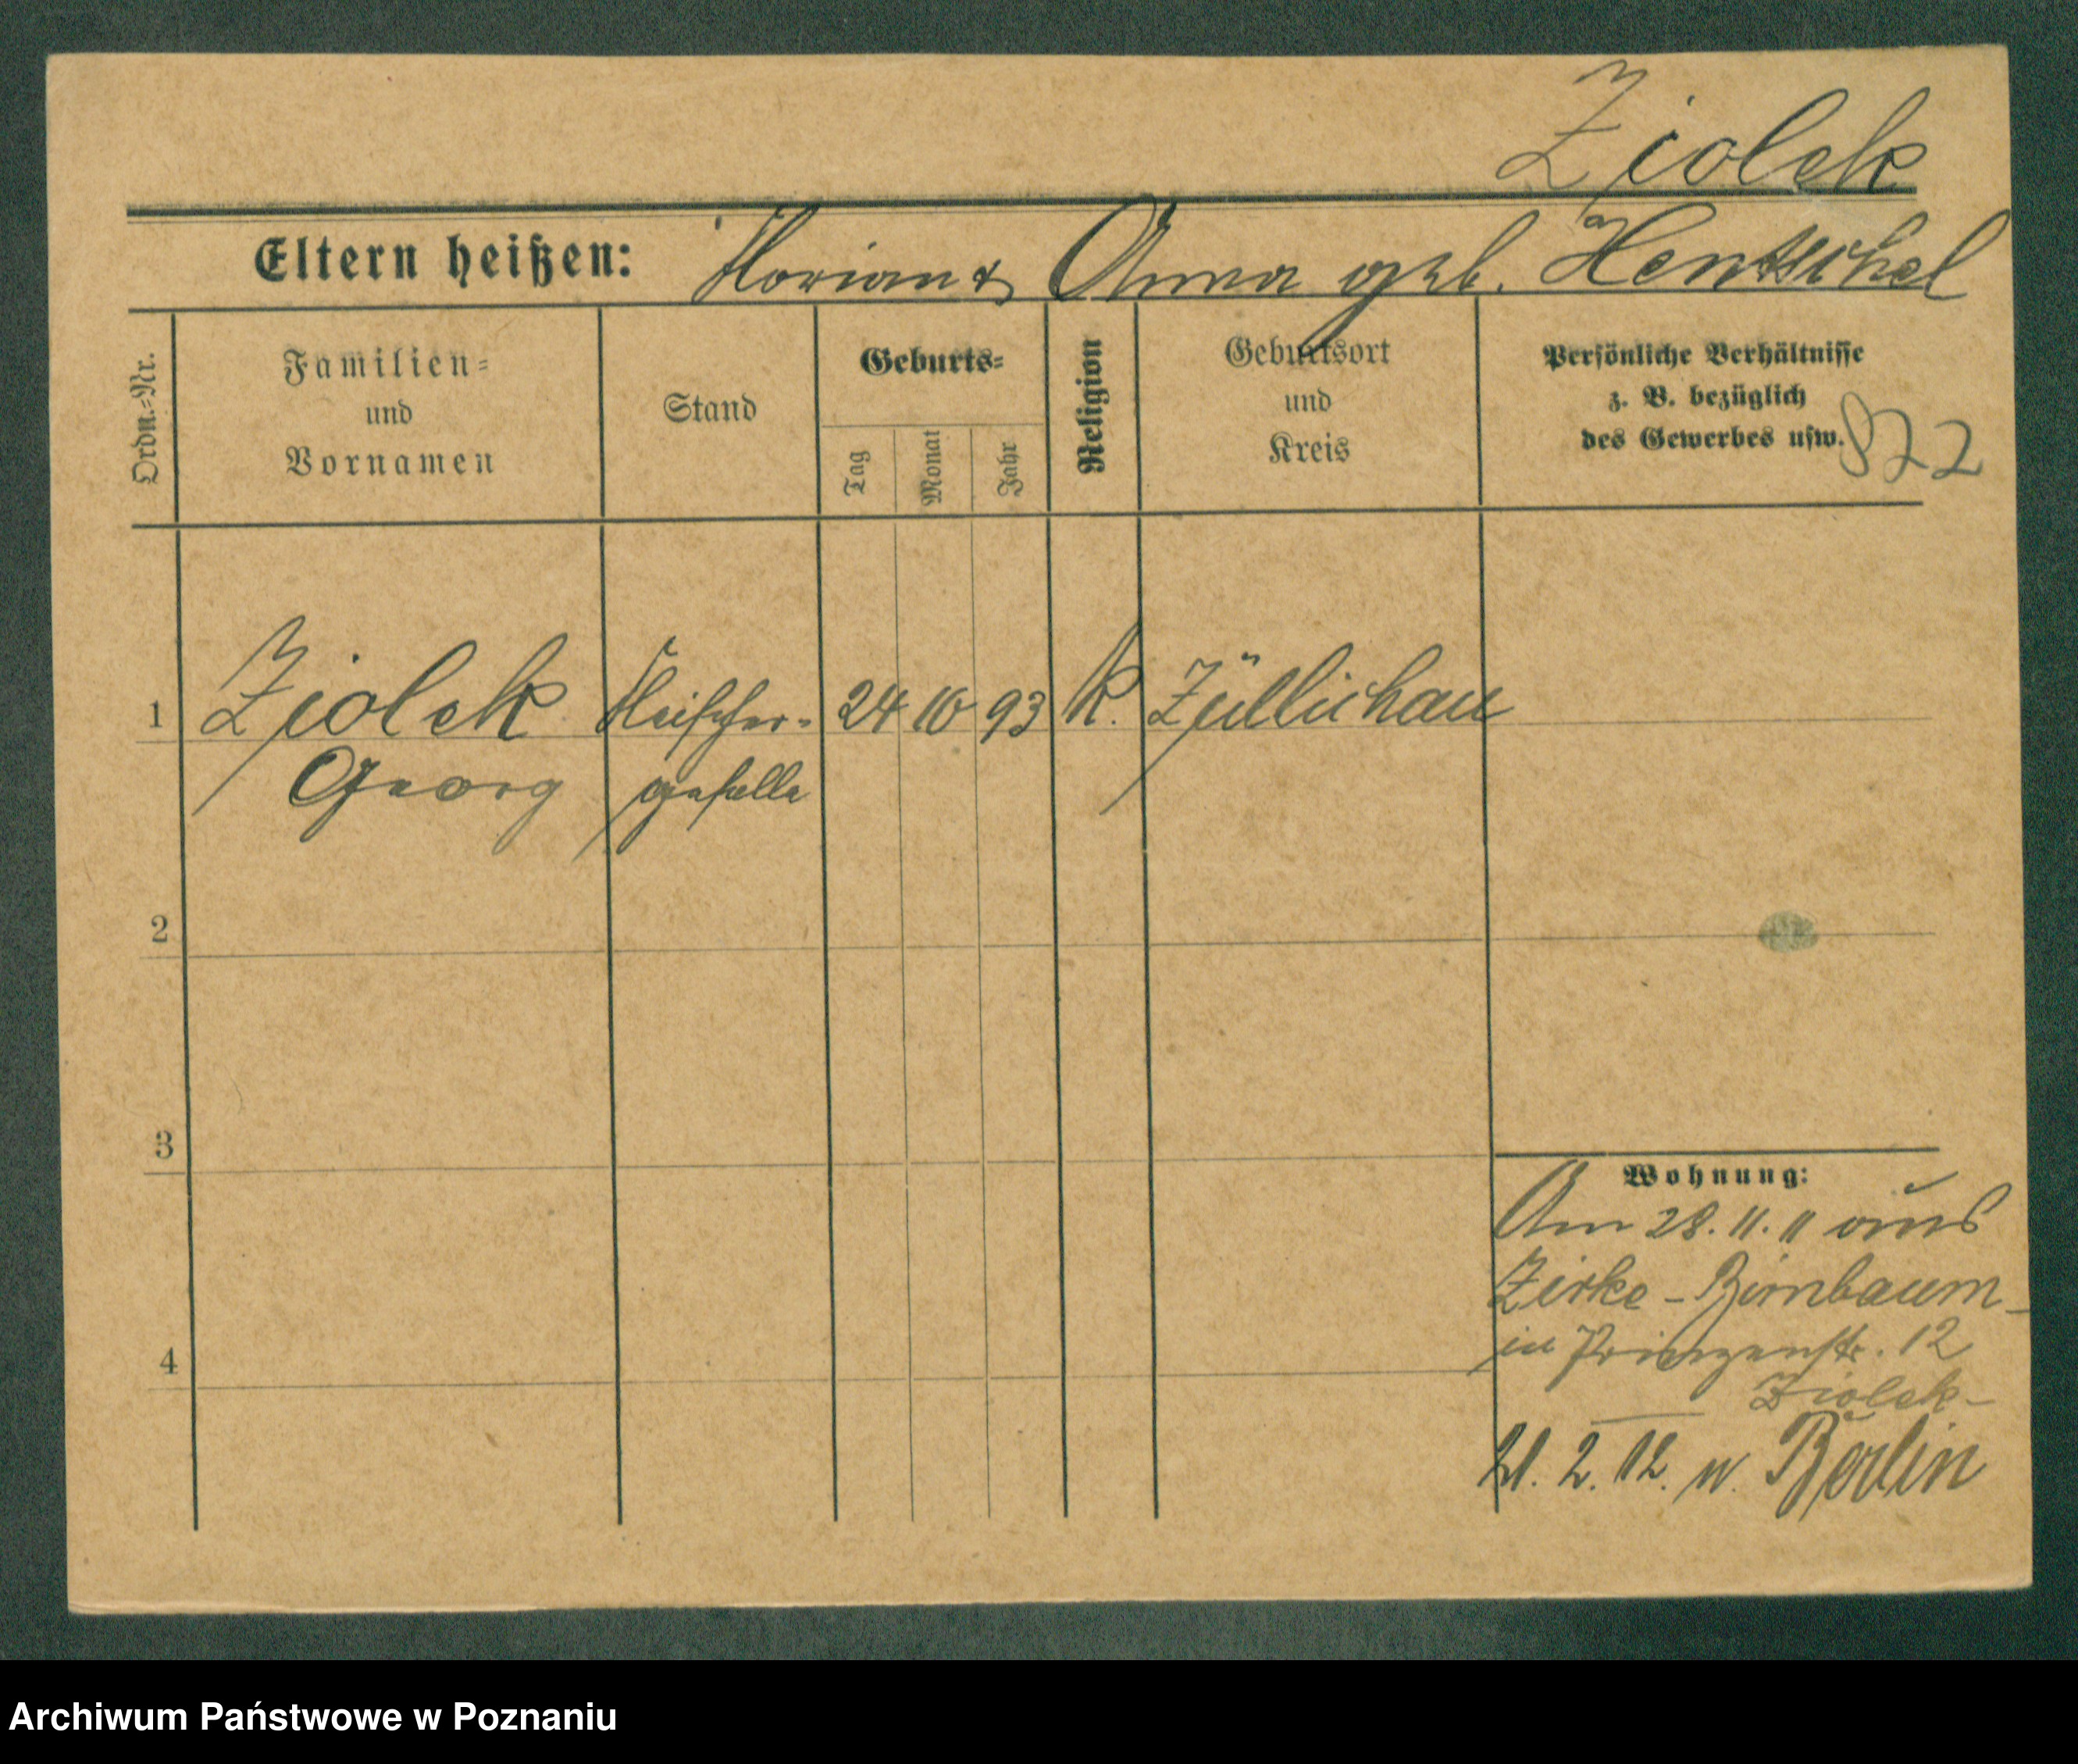 Ziolek
Eltern heißen: Florian & Anna geb. Hentschel
Ordn.=Nr.
Familien=
und
Vornamen
Stand
Geburts=
Tag
Monat
Jahr
Religion
Geburtsort
und
Kreis
Persönliche Verhältnisse
z. B. bezüglich
des Gewerbes usw.
822
1 Ziolek Fleischer= 24 10 93 k. Züllichau
Georg geselle
2
3
4
Wohnung:
Am 28. 11. 11 aus
Zirke - Birnbaum -
in Prinzenstr. 12
Ziolek -
21. 2. 12. n. Berlin
Archiwum Państwowe w Poznaniu